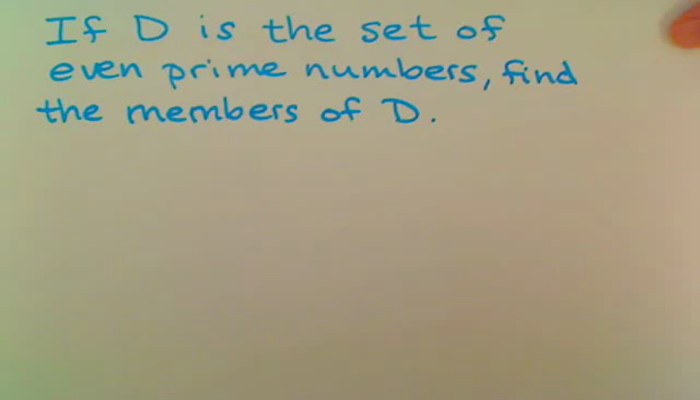 If D is the set of
even prime numbers, find
the members of D.